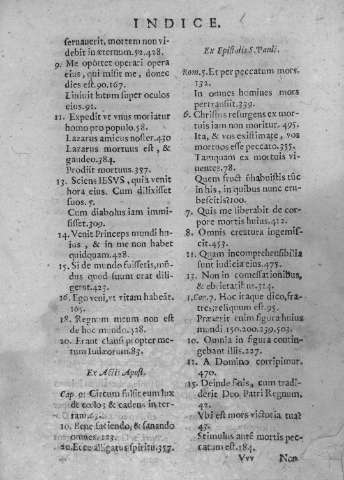 INDICE.
servaverit, mortem non vi-
debit in æternum.52.428.
9. Me oportet operari opera
eius, qui misit me, donec
dies est.90.167.
Linivit lutum super oculos
eius.91.
11. Expedit ve vnus moriatur
homo pro populo.58.
Lazarus amicus noster.430
Lazarus mortuus est, &
gaudeo.384.
Prodijt mortuus.357.
13. Sciens IESVS, quia venit
hora eius. Cum dilexisset
suos.5.
Cum diabolus iam immi-
sisset.309.
14. Venit Princeps mundi hu-
ius, & in me non habet
quidquam.428.
15. Si de mundo fuissetis, mũ-
dus quod suum erat dili-
geret.423.
16. Ego veni, vt vitam habeãt.
165.
18. Regnum meum non est
de hoc mundo.328.
20. Erant clausi propter me-
tum Iudæorum.83.
Ex Actis Apost.
Cap. 9. Circum fulsit eum lux
de cœlo; & cadens in ter-
ram.
10. Bene faciendo, & sanando
omnes.123.
20. Ecce alligatus spiritu.357.
Ex Epist. diui S. Pauli.
Rom.5. Et per peccatum mors.
132.
In omnes homines mors
pertransijt.339.
6. Christus resurgens ex mor-
tuis iam non moritur. 495.
Ita, & vos existimate, vos
mortuos esse peccato.355.
Tamquam ex mortuis vi-
uentes.78.
Quem fructũ habuistis tũc
in his, in quibus nunc eru-
bescitis?100.
7. Quis me liberabit de cor-
pore mortis huius.412.
8. Omnis creatura ingemis-
cit.453.
11. Quam incomprehensibilia
sunt iudicia eius.475.
13. Non in comessationibus,
& ebrietatibus.324.
1. Cor.7. Hoc itaque dico, fra-
tres; reliquum est.95.
Præterit enim figura huius
mundi 150.200.239.503.
10. Omnia in figura contin-
gebant illis.227.
11. A Domino corripimur.
470.
15. Deinde finis, cum tradi-
derit Deo Patri Regnum.
42.
Vbi est mors victoria tua?
47.
Stimulus autẽ mortis pec-
catum est.184.
Vvv Non